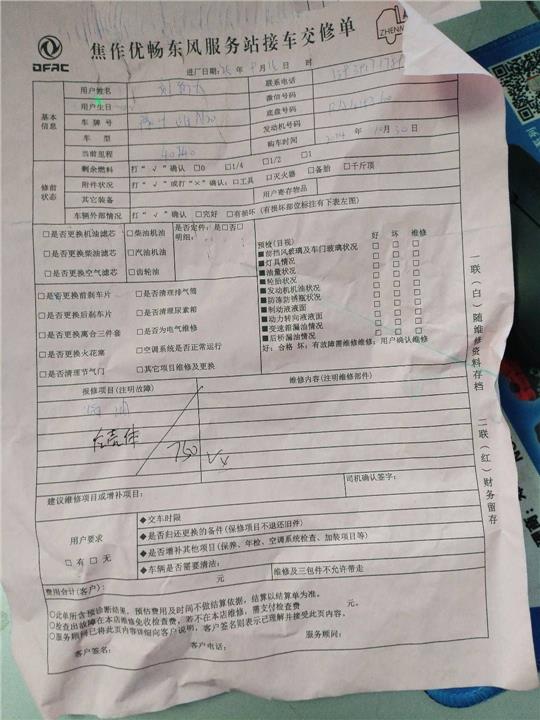 DFAC
焦作优畅东风服务站接车交修单
ZHENM
进厂日期: 年 月 日
基本信息
用户姓名
联系电话
用户生日
微信号码
车牌号
底盘号码
车型
发动机号码
当前里程
购车时间 年 10月30日
修前状态
剩余燃料 打“√”确认 □0 □1/4 □1/2 □1
附件状况 打“√”或打“×”确认:□工具 □灭火器 □备胎 □千斤顶
其它装备
用户寄存物品
车辆外部情况 打“√”确认 □完好 □有损坏(有损坏部位标注有下表左图)
□是否更换机油滤芯 □柴油机油
□是否更换柴油滤芯 □汽油机油
□是否更换空气滤芯 □齿轮油
是否定件:是□否□
明细:
□是否更换前刹车片 □是否清理排气筒
□是否更换后刹车片 □是否清理尿素箱
□是否更换离合三件套 □是否为电气维修
□是否更换火花塞 □空调系统是否正常运行
□是否清理节气门 □其它项目维修及更换
预检(目视) 好 坏 维修
■前挡风玻璃及车门玻璃状况 □ □ □
■灯具情况 □ □ □
■油量状况 □ □ □
■轮胎状况 □ □ □
■发动机机油状况 □ □ □
■防冻防锈瓶状况 □ □ □
■制动液液面 □ □ □
■动力转向液液面 □ □ □
■变速箱漏油情况 □ □ □
■后桥漏油情况 □ □ □
好:合格 坏:有故障需维修维修:用户确认维修
报修项目(注明故障)
维修内容(注明维修部件)
750
建议维修项目或增补项目:
司机确认签字:
用户要求
□有 □无
◆交车时限
◆是否归还更换的备件(保修项目不退还旧件)
◆是否增补其他项目(保养、年检、空调系统检查、加装项目等)
◆车辆是否需要清洁:
费用合计(客户): 元
维修及三包件不允许带走
○此单所含预诊断结果,预估费用及时间不做结算依据,结算以结算单为准。
○检查出故障在本店维修免收检查费,若不在本店维修,需支付检查费 元。
○服务顾问已将此页内容详细向客户说明,客户签名则表示已理解并接受此页内容。
客户签名: 客户电话: 服务顾问:
一联(白)随维修资料存档
二联(红)财务留存